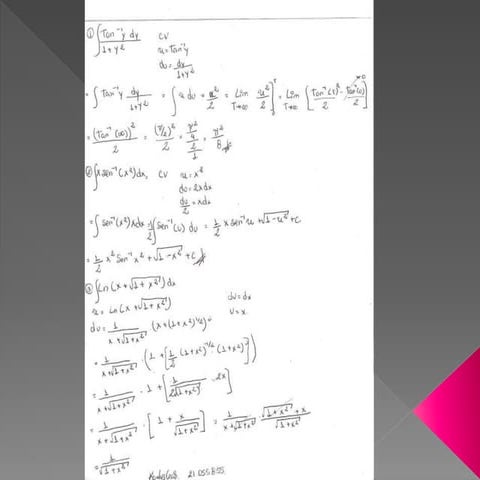 ① ∫ Tan⁻¹y dy / 1+y² CV
u = Tan⁻¹y
du = dx / 1+y²
= ∫ Tan⁻¹y dy / 1+y² = ∫ u du = u²/2 = Lim T→∞ u²/2 ] = Lim T→∞ [ Tan⁻¹(T)²/2 - Tan⁻¹(0)/2 ]
= (Tan⁻¹(∞))² / 2 = (π/2)² / 2 = π²/4 / 2/1 = π²/8
② ∫ x sen⁻¹(x²) dx, CV u = x²
du = 2xdx
du/2 = xdx
= ∫ sen⁻¹(x²) x dx = 1/2 ∫ sen⁻¹(u) du = 1/2 x sen⁻¹ u + √1-u² + c
= 1/2 x² Sen⁻¹ x² + √1-x² + c
③ ∫ Ln (x + √1+x²) dx
u = Ln (x + √1+x²) dv = dx
du = 1 / x+√1+x² · (x + (1+x²)^1/2) v = x
= 1 / x+√1+x² · ( 1 + [ 1/2 (1+x²)^-1/2 (1+x²) ] )
= 1 / x+√1+x² · 1 + [ 1 / 2√1+x² · 2x ]
= 1 / x+√1+x² · [ 1 + x / √1+x² ] = 1 / x+√1+x² · √1+x² + x / √1+x²
= 1 / √1+x²
21.055.855